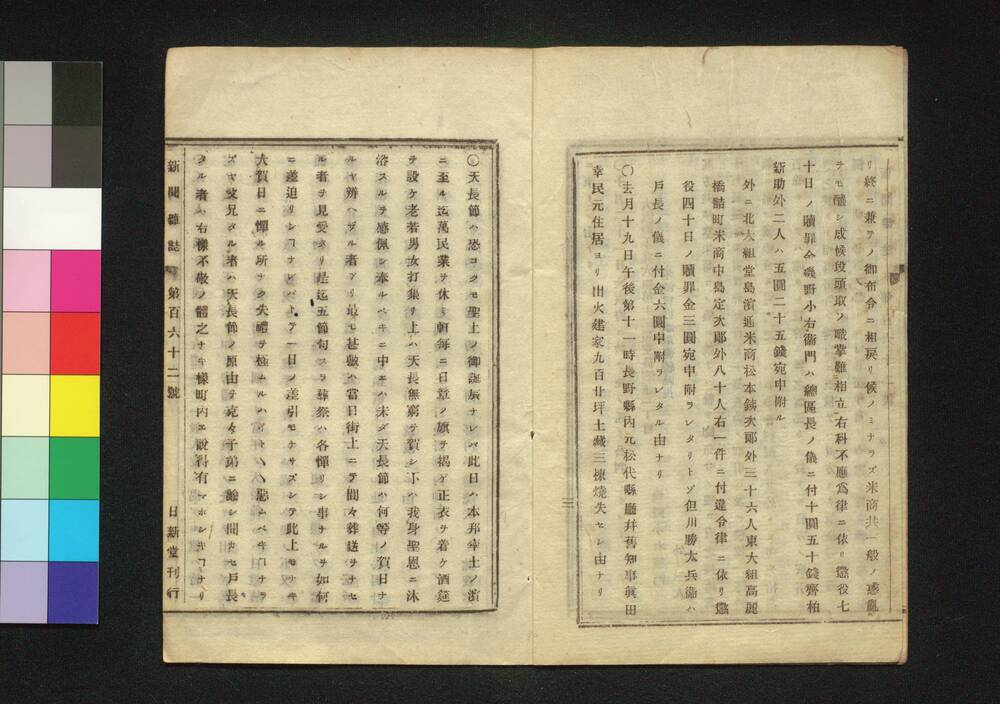 リ終ニ兼テノ御布令ニ相戻リ候ノミナラズ米商共一般ノ惑亂
ヲモ釀シ成候段頭取ノ職掌難相立右科不應爲律ニ依リ懲役七
十日ノ贖罪金磯野小右衞門ハ總區長ノ儀ニ付十圓五十錢齊柏
新助外二人ハ五圓二十五錢宛申附ル
外ニ北大組堂島濱通米商松本銕次郞外三十六人東大組高麗
橋詰町米商中島定次郞外八十人右一件ニ付違令律ニ依リ懲
役四十日ノ贖罪金三圓宛申附ラレタリトゾ但川勝太兵衞ハ
戸長ノ儀ニ付金六圓申附ラレタル由ナリ
〇去月十九日午後第十一時長野縣内元松代縣廳幷舊知事眞田
幸民元住居ヨリ出火建家九百廿坪土藏三棟燒失セシ由ナリ
三
〇天長節ハ恐コクモ聖上ノ御誕辰ナレバ此日ハ本邦率土ノ濱
ニ至ル迄萬民業ヲ休ミ軒毎ニ日章ノ旗ヲ揭ゲ正衣ヲ着ケ酒筵
ヲ設ケ老若男女打集リ上ハ天長無窮ヲ賀シ下ハ我身聖恩ニ沐
浴スルヲ感佩シ奉ルベキニ中ニハ未ダ天長節ハ何等ノ賀日ナ
ルヤ辨ヘザル者アリ最モ甚敷ハ當日街上ニテ間々葬送ヲナセ
ル者ヲ見受ケリ是迄五節句スラ葬祭ハ各憚リシ事ナルヲ如何
ニ差迫リシヿナレバトテ一日ノ差引モナサズシテ此上モナキ
大賀日ニ憚ル所ナク失禮ヲ極ムルハイト〱惡ムベキヿナラ
ズヤ父兄タル者ハ天長節ノ原由ヲ克々子弟ニ諭シ聞カセ戸長
タル者ハ右樣不敬ノ體之ナキ樣町内エ說得有マホシキヿナリ
新聞雜誌 第百六十二號 日新堂刊行